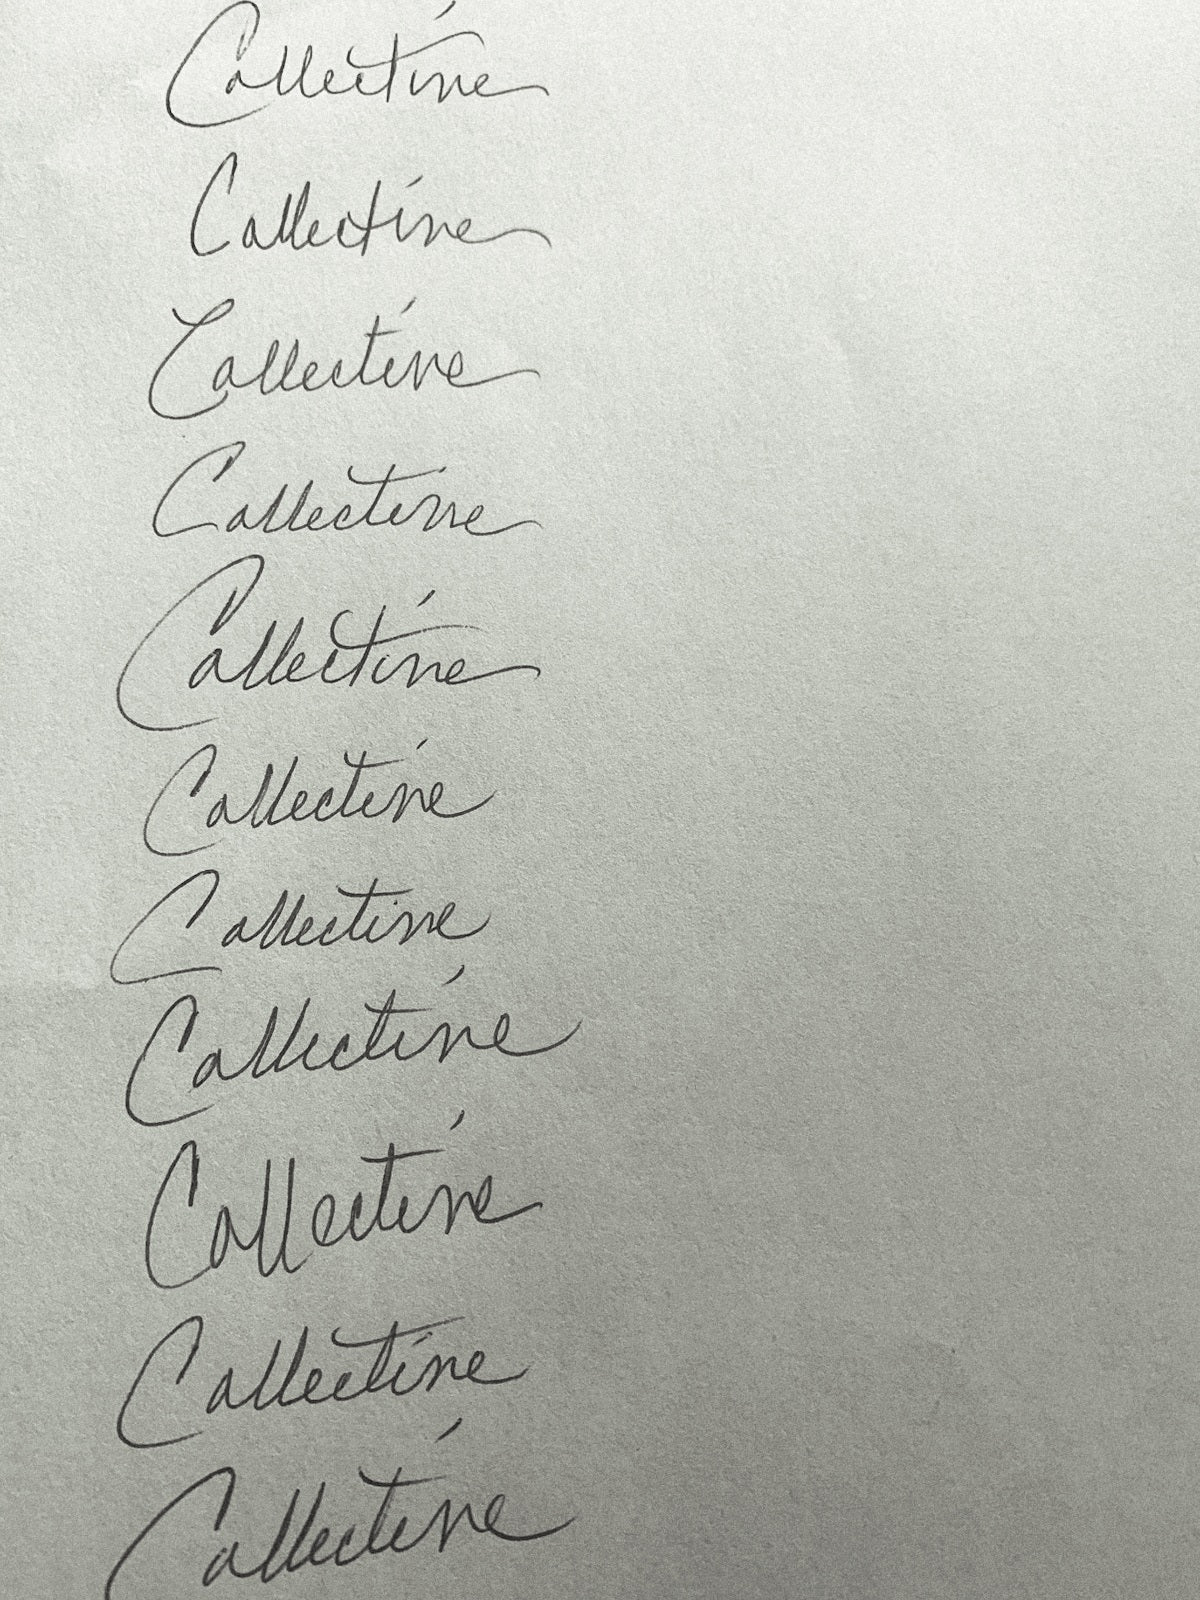 Collective
Collective
Collective
Collective
Collective
Collective
Collective
Collective
Collective
Collective
Collective